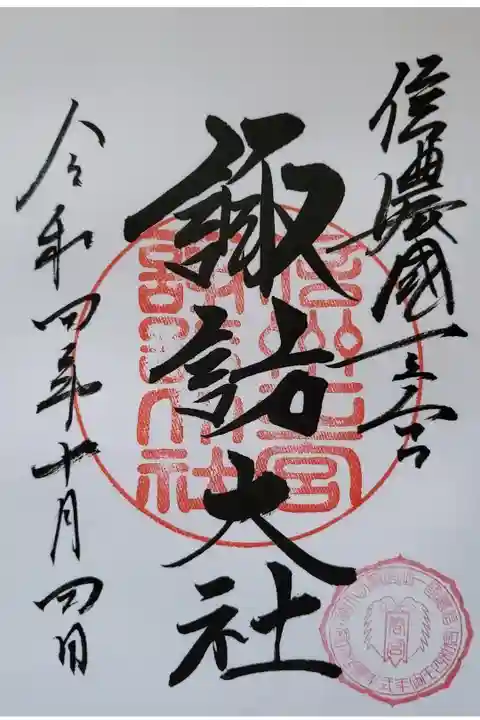 信濃國一之宮
諏訪大社
令和四年十月四日